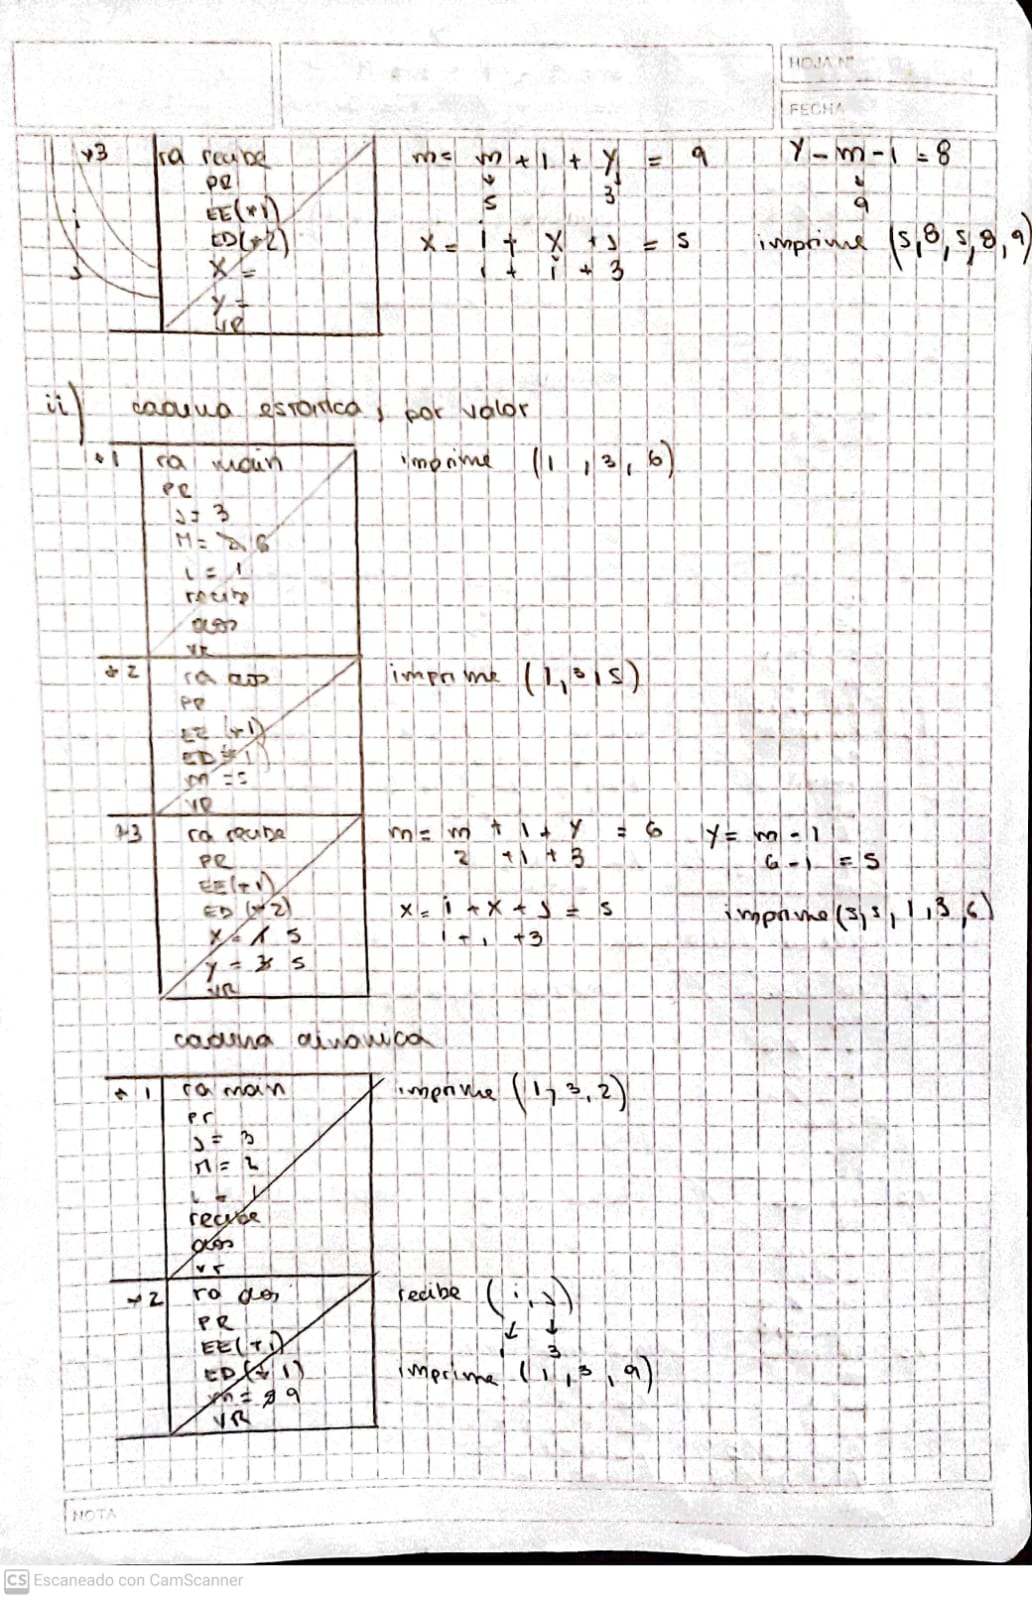 HOJA N°
FECHA
*3 ra recibe
PR
EE(*1)
ED(*2)
i
j
x =
y =
VR
m = m + 1 + y = 9
5 3
y - m - 1 = 8
9
x = i + x + j = 5
1 + 1 + 3
imprime (5,8,5,8,9)
ii) cadena estatica, por valor
*1 ra main
PR
j = 3
M = 2 6
i = 1
recibe
dos
VR
imprime (1, 3, 6)
*2 ra dos
PR
EE (*1)
ED (*1)
m = 5
VR
imprime (1,3,5)
*3 ra recibe
PR
EE(*1)
ED (*2)
x = 1 5
y = 3 5
VR
m = m + 1 + y = 6
2 + 1 + 3
y = m - 1
6 - 1 = 5
x = i + x + j = 5
1 + 1 + 3
imprime (5,5,1,3,6)
cadena dinamica
*1 ra main
Pr
j = 3
M = 2
i = 1
recibe
dos
vr
imprime (1,3,2)
*2 ra dos
PR
EE(*1)
ED (*1)
m = 5 9
VR
recibe (i,j)
1 3
imprime (1,3,9)
NOTA
CS Escaneado con CamScanner